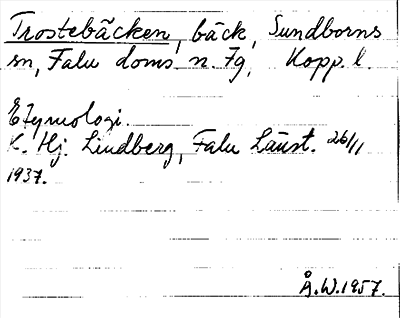 Trostebäcken, bäck, Sundborns
sn, Falu doms. n. Fg, Kopp. l.
Etymologi.
K. Hj. Lindberg, Falu Länst. 26/11
1937.
Å.W.1957.